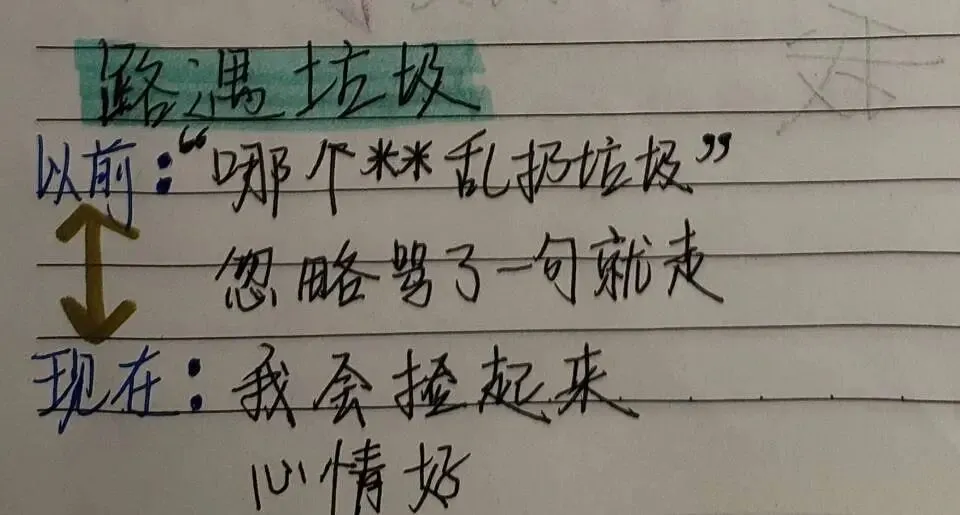 路遇垃圾
以前：“哪个**乱扔垃圾”
忽略骂了一句就走
现在：我会捡起来
心情好